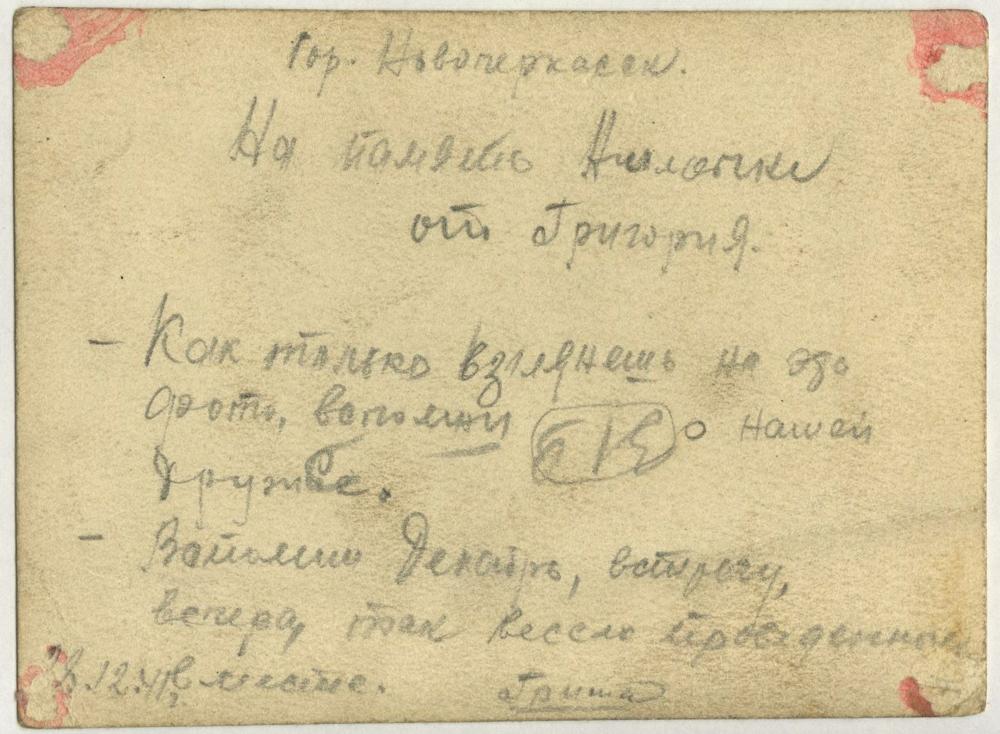 Гор. Новочеркасск.
На память
от Григория.
- Как только взглянешь на это
фото, вспомни о нашей
дружбе.
- Вспомни Декабрь, встречу,
вечера, так весело проведенные
12. вместе. Гриша